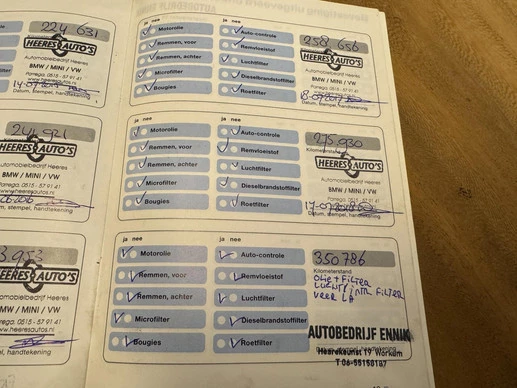 224 631
HEERES AUTO'S
Automobielbedrijf Heeres
BMW / MINI / VW
Parrega. 0515 - 57 91 41
www.heeresautos.nl
Datum, stempel, handtekening
241 921
HEERES AUTO'S
Automobielbedrijf Heeres
BMW / MINI / VW
Parrega. 0515 - 57 91 41
www.heeresautos.nl
stempel, handtekening
HEERES AUTO'S
Automobielbedrijf Heeres
BMW / MINI / VW
Parrega. 0515 - 57 91 41
www.heeresautos.nl
stempel, handtekening
ja nee
ja nee
Motorolie
Auto-controle
Remmen, voor
Remvloeistof
Remmen, achter
Luchtfilter
Microfilter
Dieselbrandstoffilter
Bougies
Roetfilter
258 656
HEERES AUTO'S
Automobielbedrijf Heeres
BMW / MINI / VW
Parrega. 0515 - 57 91 41
Datum, stempel, handtekening
ja nee
ja nee
Motorolie
Auto-controle
Remmen, voor
Remvloeistof
Remmen, achter
Luchtfilter
Microfilter
Dieselbrandstoffilter
Bougies
Roetfilter
275 930
Kilometerstand
HEERES AUTO'S
Automobielbedrijf Heeres
BMW / MINI / VW
Parrega. 0515 - 57 91 41
Datum, stempel, handtekening
ja nee
ja nee
Motorolie
Auto-controle
Remmen, voor
Remvloeistof
Remmen, achter
Luchtfilter
Microfilter
Dieselbrandstoffilter
Bougies
Roetfilter
350786
Kilometerstand
OLIE + FILTER
VEER LA
AUTOBEDRIJF ENNIK
Heerekeunst 19 Workum